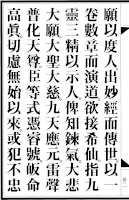 願以度人出妙經而傳世以一
卷數章而演道欲接希仙指九
靈三精以示人俾知鍊氣大悲
大願大聖大慈九天應元雷聲
普化天尊臣等式憑容號皈命
高眞切慮無始以來或犯不忠